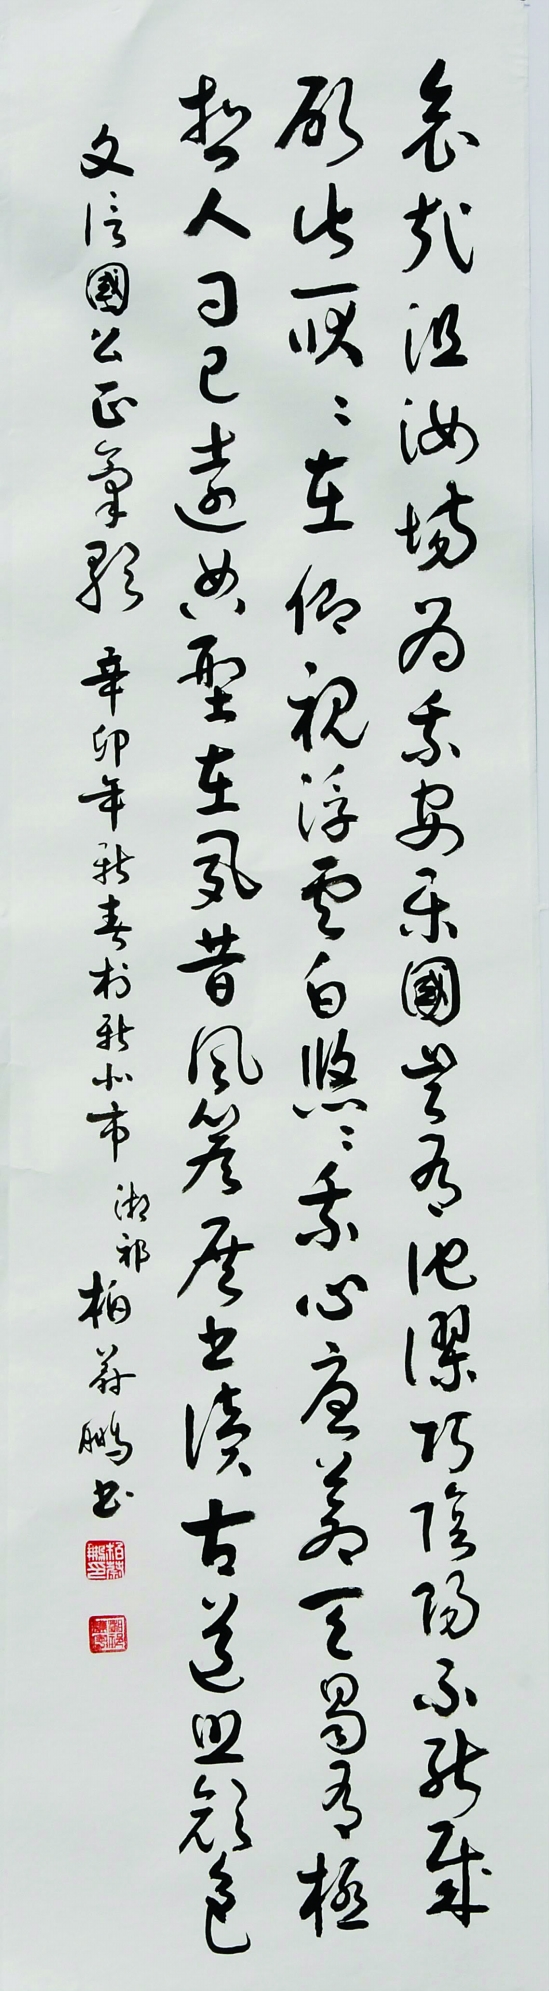 哀哉沮洳場為我安樂國豈有他謬巧陰陽不能賊
顧此耿〻在仰視浮雲白悠〻我心憂蒼天曷有極
哲人日已遠典型在夙昔風簷展書讀古道照顏色
文信國公正氣歌 辛卯年新春於新北市 湘祁柏蔚鵬書